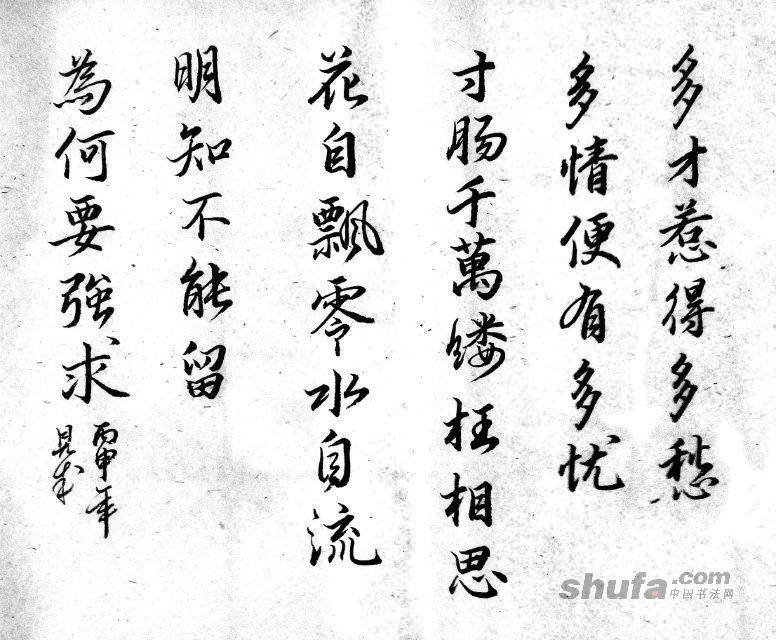 多才惹得多愁
多情便有多忧
寸肠千萬缕枉相思
花自飄零水自流
明知不能留
為何要強求
丙申年
shufa.com
中国书法网